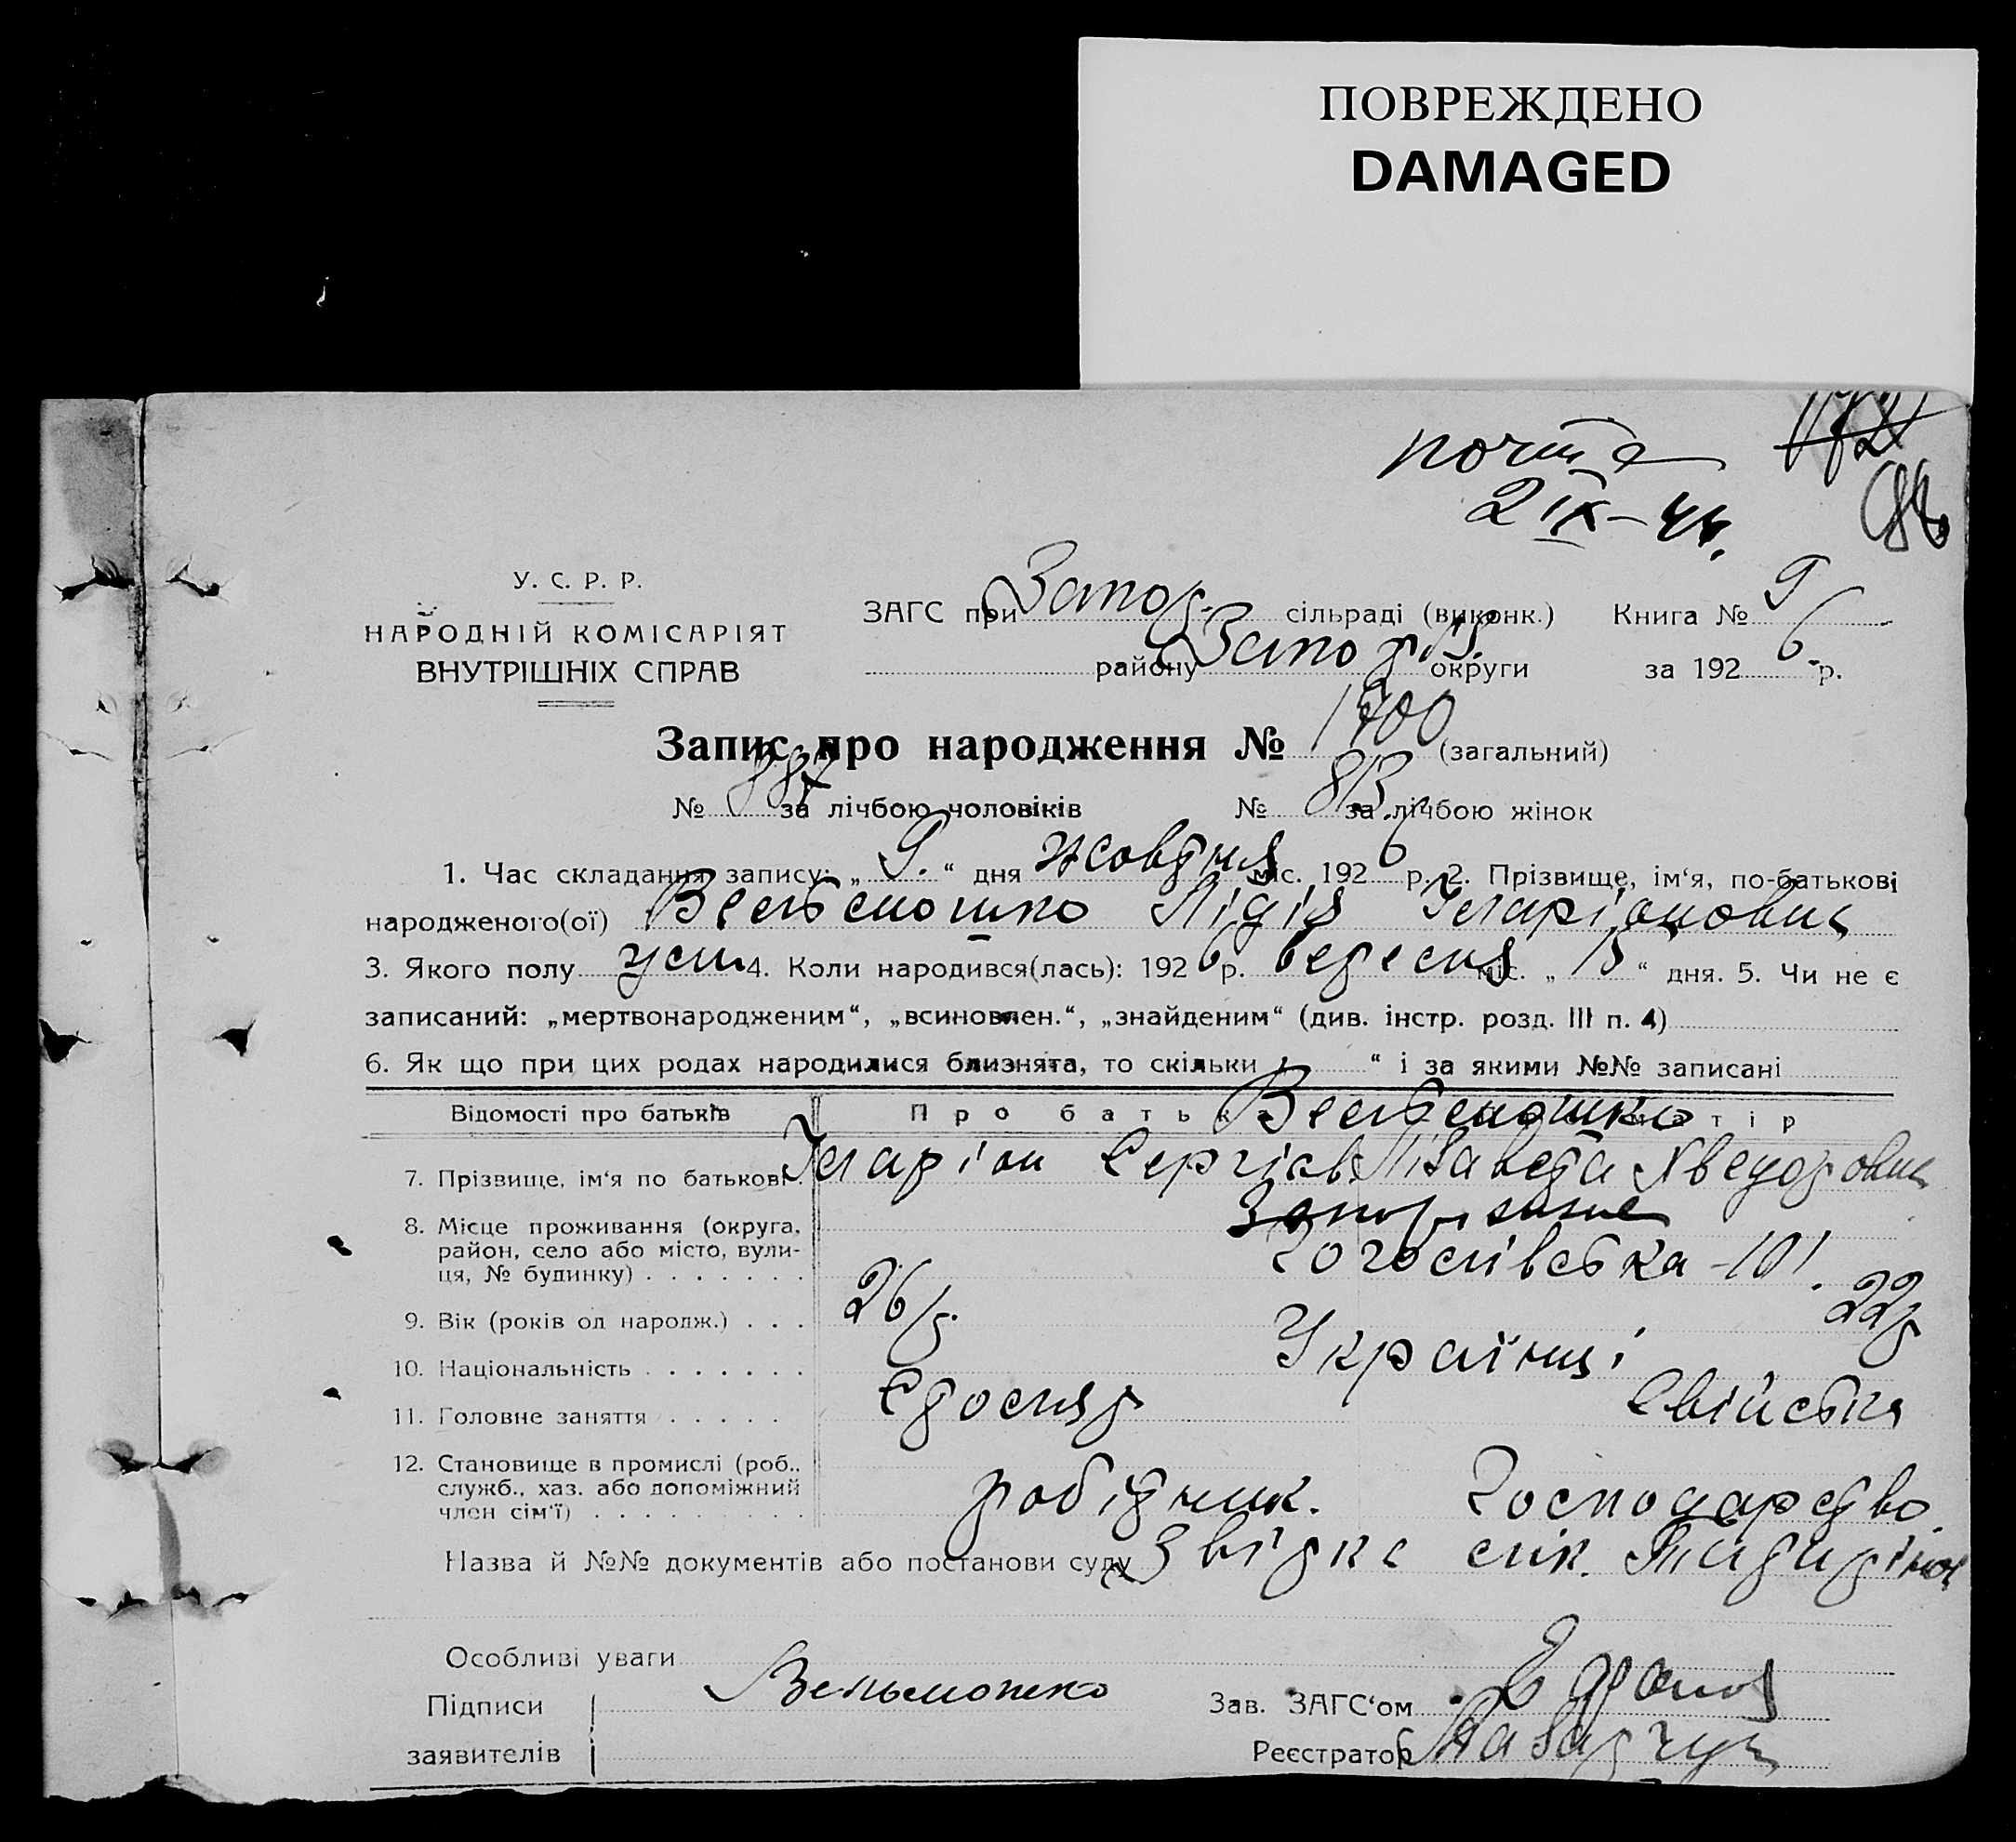 ПОВРЕЖДЕНО
DAMAGED
почта
2 IX-44.
У. С. Р. Р.
НАРОДНІЙ КОМІСАРІЯТ
ВНУТРІШНІХ СПРАВ
ЗАГС при Запор. сільраді (виконк.) Книга № 9
району Запоріз. округи за 1926 р.
Запис про народження № 1700 (загальний)
№ 887 за лічбою чоловіків № 813 за лічбою жінок
1. Час складання запису: „ 9. “ дня жовтня міс. 1926 р. 2. Прізвище, ім‘я, по-батькові
народженого(ої) Вельможко Лідія Іларіоновна
3. Якого полу жін. 4. Коли народився(лась): 1926 р. вересня міс. „ 15 “ дня. 5. Чи не є
записаний: „мертвонародженим“, „всиновлен.“, „знайденим“ (див. інстр. розд. III п. 4)
6. Як що при цих родах народилися близнята, то скільки „ “ і за якими №№ записані
Відомості про батьків Про батька Вельможко матір
7. Прізвище, ім‘я по батькові. Іларіон Сергієв. Лізавета Хведоровна
8. Місце проживання (округа, район, село або місто, вулиця, № будинку) Запоріжжє
Гоголівська-101.
9. Вік (років од народж.) 26 р. 22 р
10. Національність Українці
11. Головне заняття Столяр Свійське
12. Становище в промислі (роб., служб., хаз. або допоміжний член сім‘ї) робітник. Господарство
Назва й №№ документів або постанови суду Звідка
Особливі уваги
Підписи Вельможко Зав. ЗАГС‘ом
заявителів Реєстратор